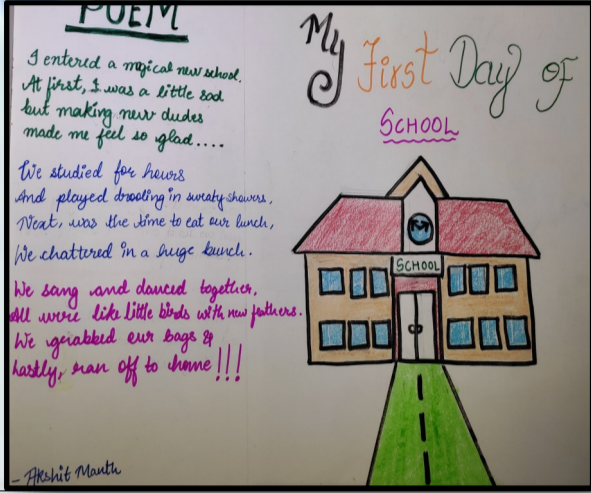 POEM
I entered a magical new school.
At first, I was a little sad
but making new dudes
made me feel so glad....
We studied for hours
And played drooling in sweaty showers,
Next, was the time to eat our lunch,
We chattered in a huge bunch.
We sang and danced together,
All were like little birds with new feathers.
We grabbed our bags &
Lastly, ran off to home!!!
- Akshit Manth
My First Day of
SCHOOL
SCHOOL